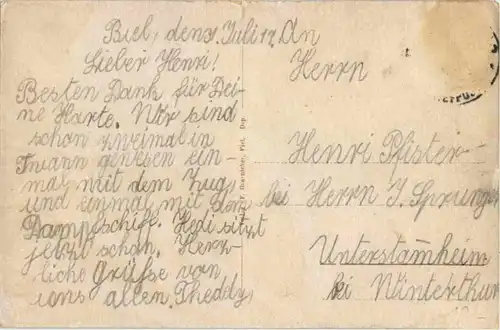 Biel, den 1. Juli 12. An
Lieber Henri!
Herrn
Besten Dank für Dei-
ne Karte. Wir sind
schon zweimal in
Twann gewesen ein-
mal mit dem Zug
und einmal mit dem
Dampfschiff. Hedi sitzt
jetzt schon. Herz-
liche Grüsse von
uns allen. Theddy
Henri Pfister
bei Herrn J. Sprunger
Unterstam̄heim
bei Winterthur